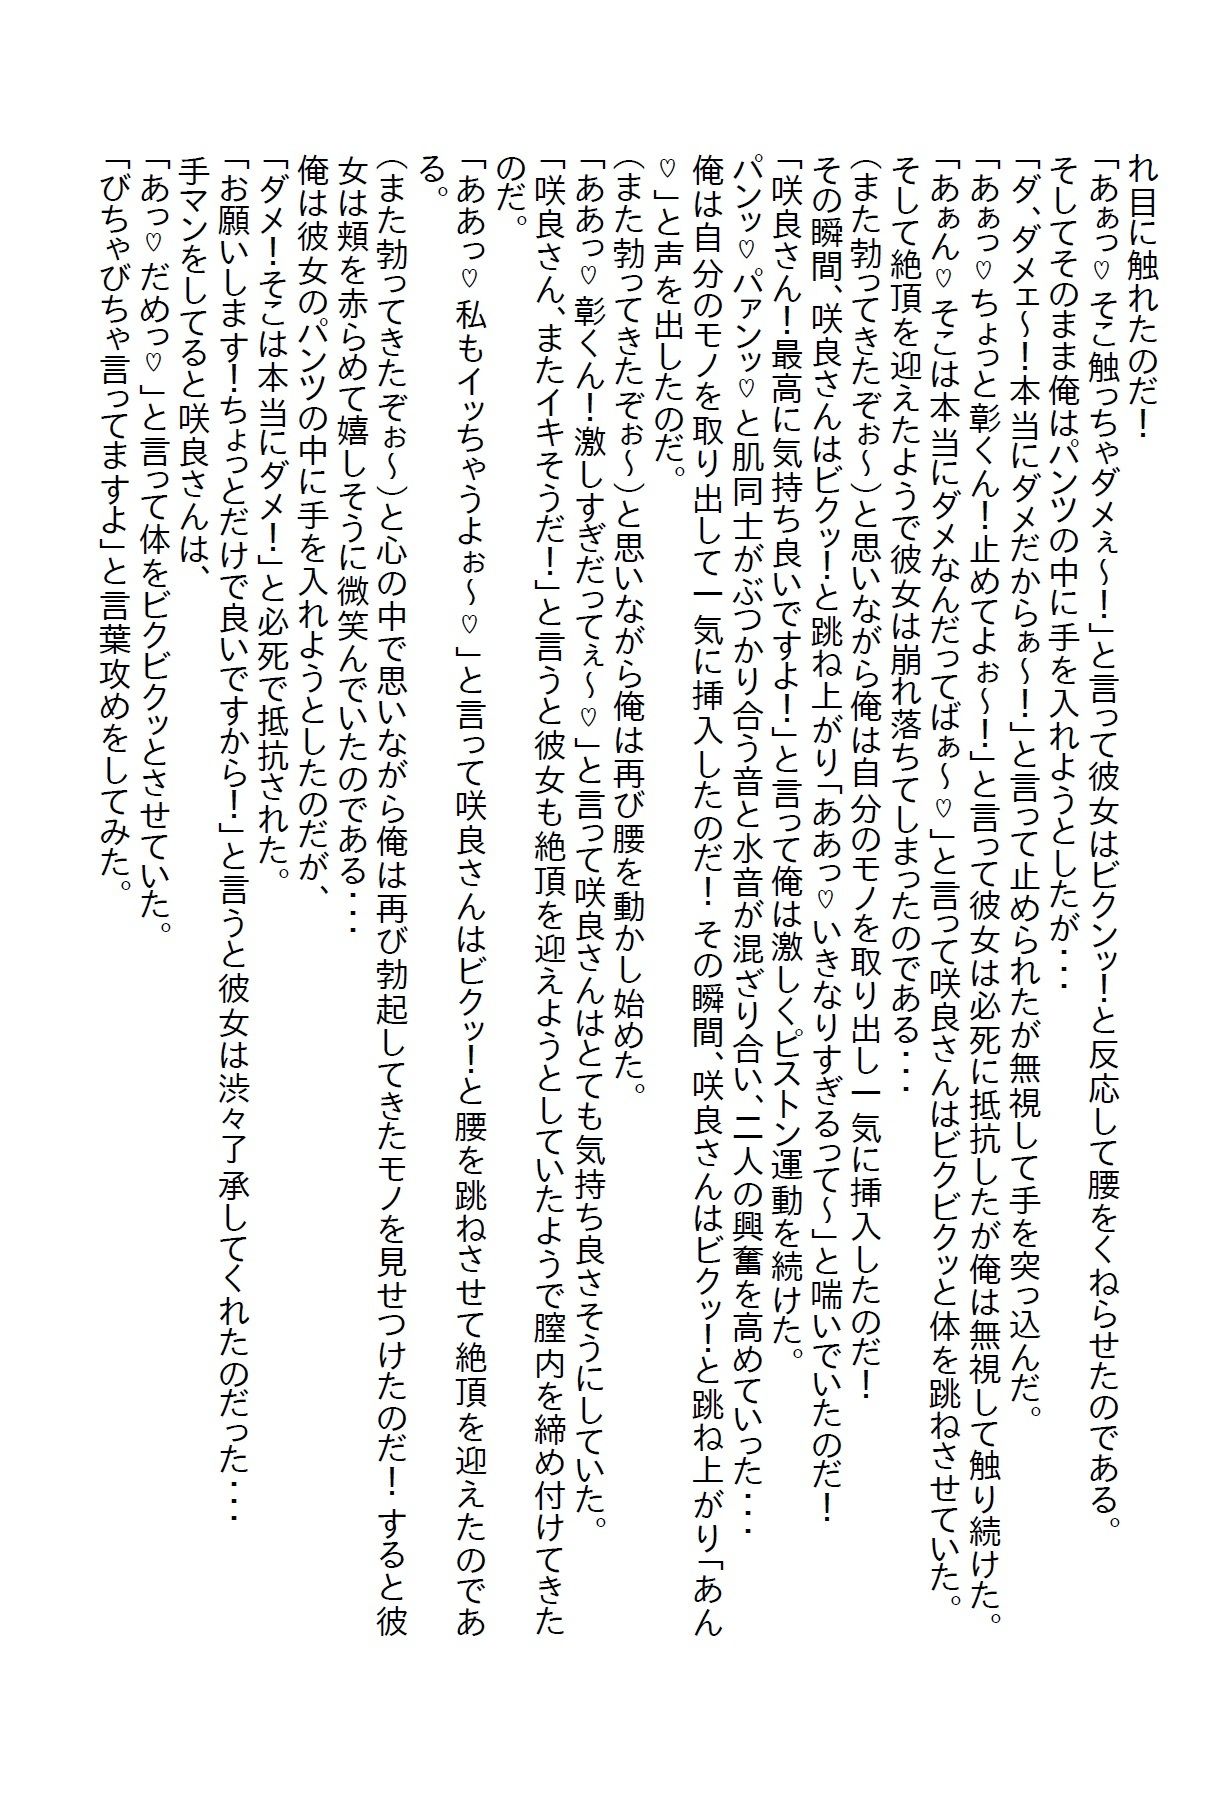 れ目に触れたのだ！
「あぁっ♡そこ触っちゃダメぇ～！」と言って彼女はビクンッ！と反応して腰をくねらせたのである。
そしてそのまま俺はパンツの中に手を入れようとしたが・・・
「ダ、ダメェ～！本当にダメだからぁ～！」と言って止められたが無視して手を突っ込んだ。
「あぁっ♡ちょっと彰くん！止めてよぉ～！」と言って彼女は必死に抵抗したが俺は無視して触り続けた。
「あぁん♡そこは本当にダメなんだってばぁ～♡」と言って咲良さんはビクビクッと体を跳ねさせていた。
そして絶頂を迎えたようで彼女は崩れ落ちてしまったのである・・・
（また勃ってきたぞぉ～）と思いながら俺は自分のモノを取り出し一気に挿入したのだ！
その瞬間、咲良さんはビクッ！と跳ね上がり「ああっ♡いきなりすぎるって～」と喘いでいたのだ！
「咲良さん！最高に気持ち良いですよ！」と言って俺は激しくピストン運動を続けた。
パンッ♡パァンッ♡と肌同士がぶつかり合う音と水音が混ざり合い、二人の興奮を高めていった・・・
俺は自分のモノを取り出して一気に挿入したのだ！その瞬間、咲良さんはビクッ！と跳ね上がり「あん
♡」と声を出したのだ。
（また勃ってきたぞぉ～）と思いながら俺は再び腰を動かし始めた。
「ああっ♡彰くん！激しすぎだってぇ～♡」と言って咲良さんはとても気持ち良さそうにしていた。
「咲良さん、またイキそうだ！」と言うと彼女も絶頂を迎えようとしていたようで膣内を締め付けてきた
のだ。
「ああっ♡私もイッちゃうよぉ～♡」と言って咲良さんはビクッ！と腰を跳ねさせて絶頂を迎えたのであ
る。
（また勃ってきたぞぉ～）と心の中で思いながら俺は再び勃起してきたモノを見せつけたのだ！すると彼
女は頬を赤らめて嬉しそうに微笑んでいたのである・・・
俺は彼女のパンツの中に手を入れようとしたのだが、
「ダメ！そこは本当にダメ！」と必死で抵抗された。
「お願いします！ちょっとだけで良いですから！」と言うと彼女は渋々了承してくれたのだった・・・
手マンをしてると咲良さんは、
「あっ♡だめっ♡」と言って体をビクビクッとさせていた。
「びちゃびちゃ言ってますよ」と言葉攻めをしてみた。